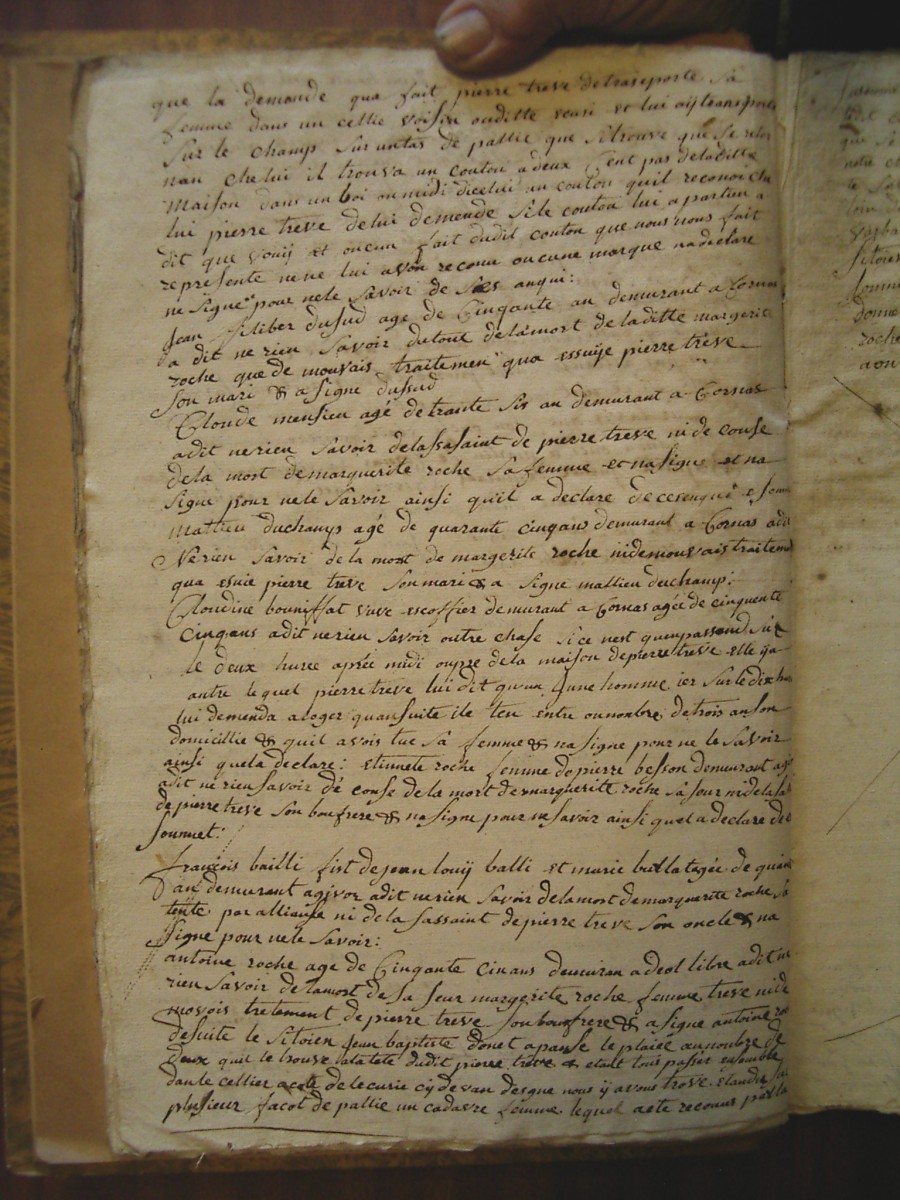 que la demande qua fait pierre treve detransporte sa
femme dans un cellie voisin ouditte ecuri et lui aÿ transporte
sur le champ sur untas de pallie que sitrouve que se retour
nan che lui il trouva un coutou a deux cent pas deladitte
maison dans un boi ou midi dicelui un coutou quil reconoi che
lui pierre treve delui demende sile coutou lui apartien a
dit que vouij et oucun fait dudit coutou que nous nous fait
represente ne ne lui avon reconu oucune marque na declare
ne signe pour nele savoir de anqui:
Jean filiber dusud age de Cinqante an demurant a Cornas
a dit ne rien savoir dutout delamort deladitte margerite
roche que de mouvais traitemen qua essuije pierre treve
son mari & a signe dusud
Cloude mensieu agé de trante sis an demurant a Cornas
adit nerien savoir delassasaint de pierre treve ni de couse
dela mort demarguerite roche sa femme et nasigne et na
signe pour nele savoir ainsi quil a declare de
mattieu duchamp agé de quarante cinqans demurant a Cornas adit
Nerien savoir dela mort de margerite roche nidemouvais traitement
qua esuie pierre treve son mari & a signe mattieu duchamp:
Cloudine bouniffat vuve escoffier demurant a Cornas agée de cinquente
Cinqans adit nerien savoir outre chose si ce nest quenpassand sur
le deux huree aprée midi oupre dela maison depierre treve elle
antre lequel pierre treve lui dit quun june homme ier surledix
lui demenda aloger quansuite ile ten entre ounombre de trois anson
domicillie & quil avois tue sa femme & nasigne pour ne le savoir
ainsi quela declare: etiunete roche femme de pierre besson demeurant
adit ne rien savoir dé couse dela mort demarguerite roche sa seur nidelasa
de pierre treve son boufrere & nasigne pour ne savoir ainsi quel a declare de
sonmet:
françois bailli fist de jean louij balli et marie agée de
an demurant agivor adit nerien savoir delamort demarguerite roche sa
tente par alliance ni dela sassaint depierre treve son oncle & na
signe pour nele savoir:
antoine roche age de Cinqante cinans demuran adeol libre adit ne
rien savoir de lamort de sa seur margerite roche femme treve nide
movois tretement de pierre treve son boufrere & a signe antoine
desuite le sitoien Jean baptiste donet apanse le plaiee aunoubre de
deux quil se trouve alatete dudit pierre treve & etant tous passer ensemble
dan le cellier acote delecurie cy devan desque nous ij avons trove etandu sur
plusieur facot de pallie un cadavre femme lequel aete reconus par la